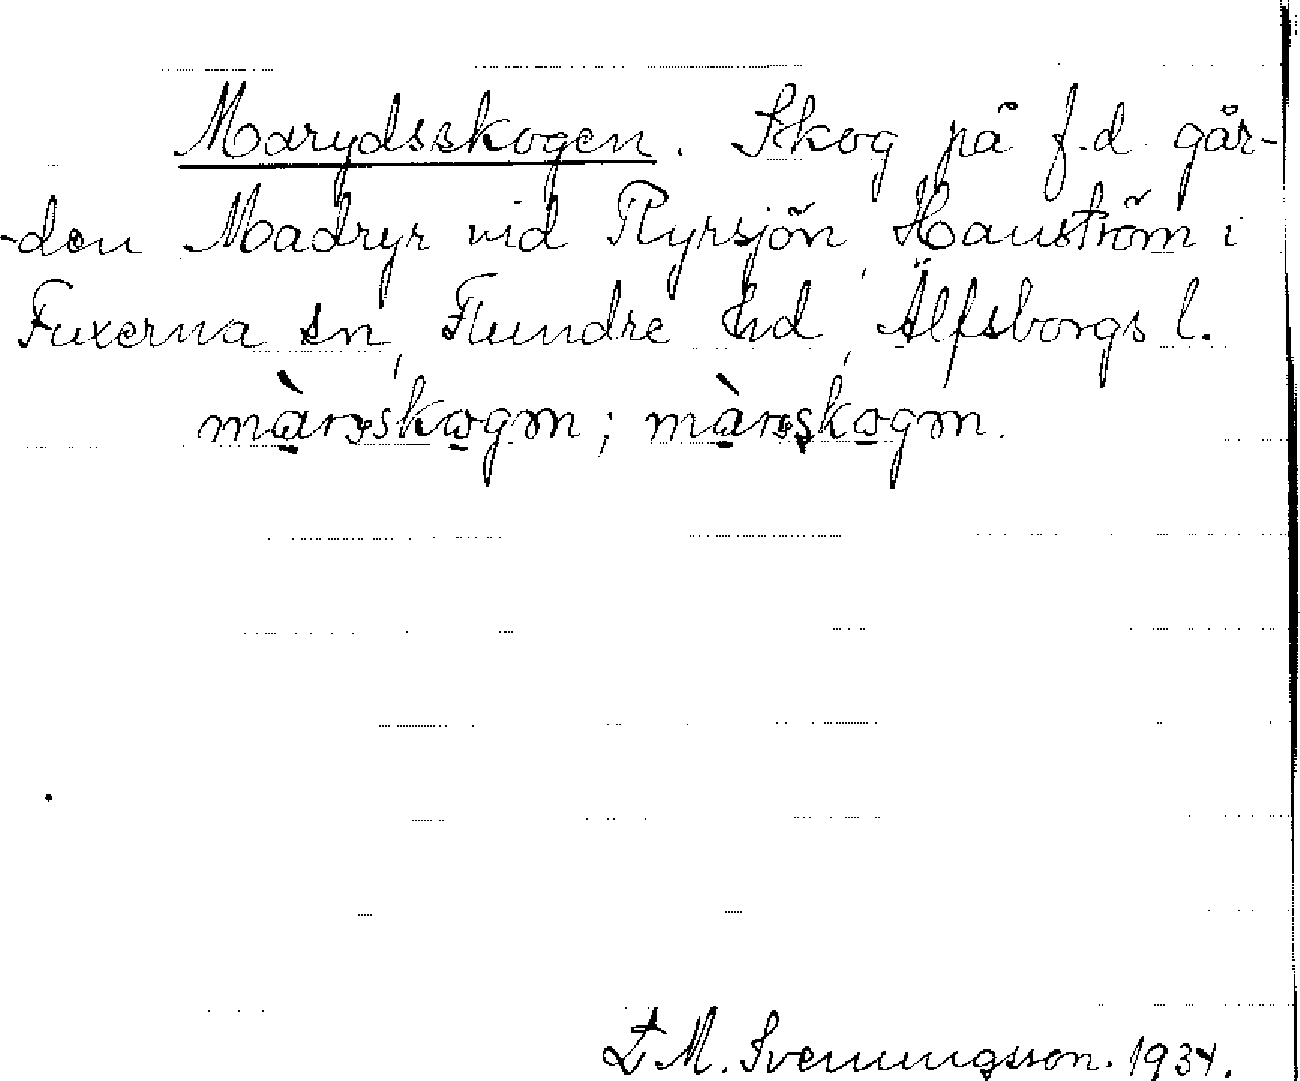 Marydsskogen. Skog på f.d. går-
-den Madryr vid Ryrsjön, Hanström i
Fuxerna sn, Flundre hd, Älfsborgs l.
L M. Svenungsson. 1934.